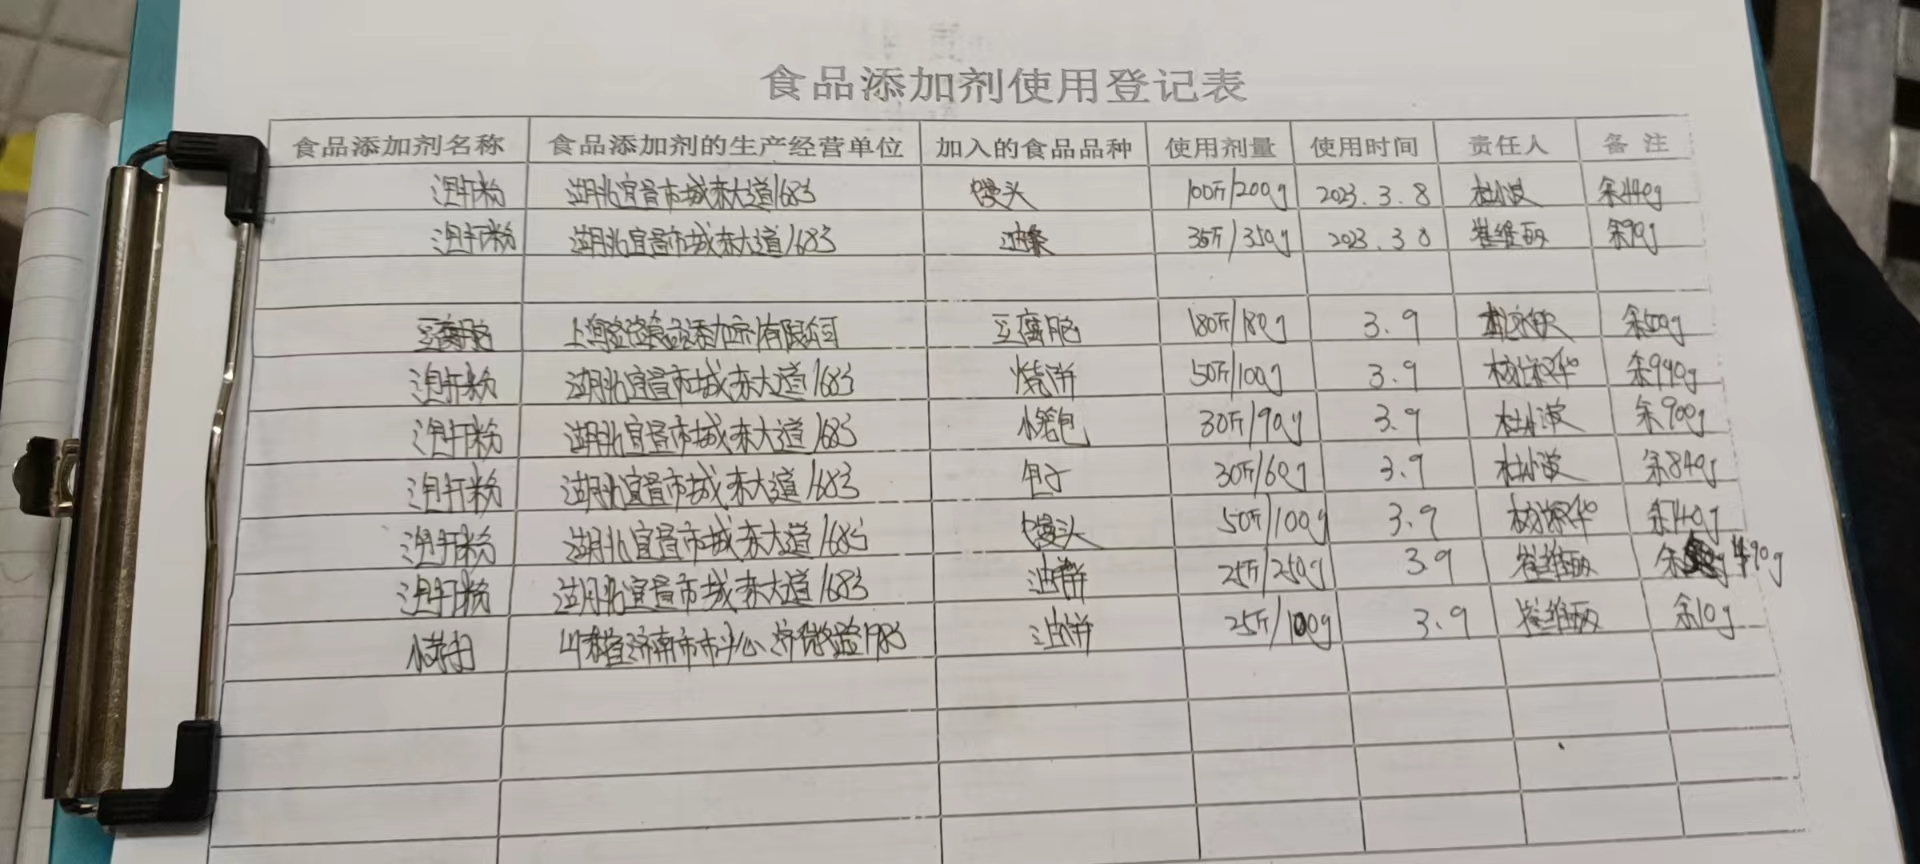 食品添加剂使用登记表
食品添加剂名称 食品添加剂的生产经营单位 加入的食品品种 使用剂量 使用时间 责任人 备注
泡打粉 湖北宜昌市城东大道168号 馒头 100斤/200g 2023.3.8 杜小波 余440g
泡打粉 湖北宜昌市城东大道168号 油条 35斤/350g 2023.3.8 崔维丽 余90g
豆腐脑 上海 食品添加剂有限公司 豆腐脑 180斤/180g 3.9 余50g
泡打粉 湖北宜昌市城东大道168号 烧饼 50斤/100g 3.9 余990g
泡打粉 湖北宜昌市城东大道168号 小笼包 30斤/90g 3.9 杜小波 余900g
泡打粉 湖北宜昌市城东大道168号 包子 30斤/60g 3.9 杜小波 余840g
泡打粉 湖北宜昌市城东大道168号 馒头 50斤/100g 3.9 余740g
泡打粉 湖北宜昌市城东大道168号 油饼 25斤/250g 3.9 崔维丽 余490g
小苏打 山东省济南市市中心 油饼 25斤/100g 3.9 崔维丽 余10g